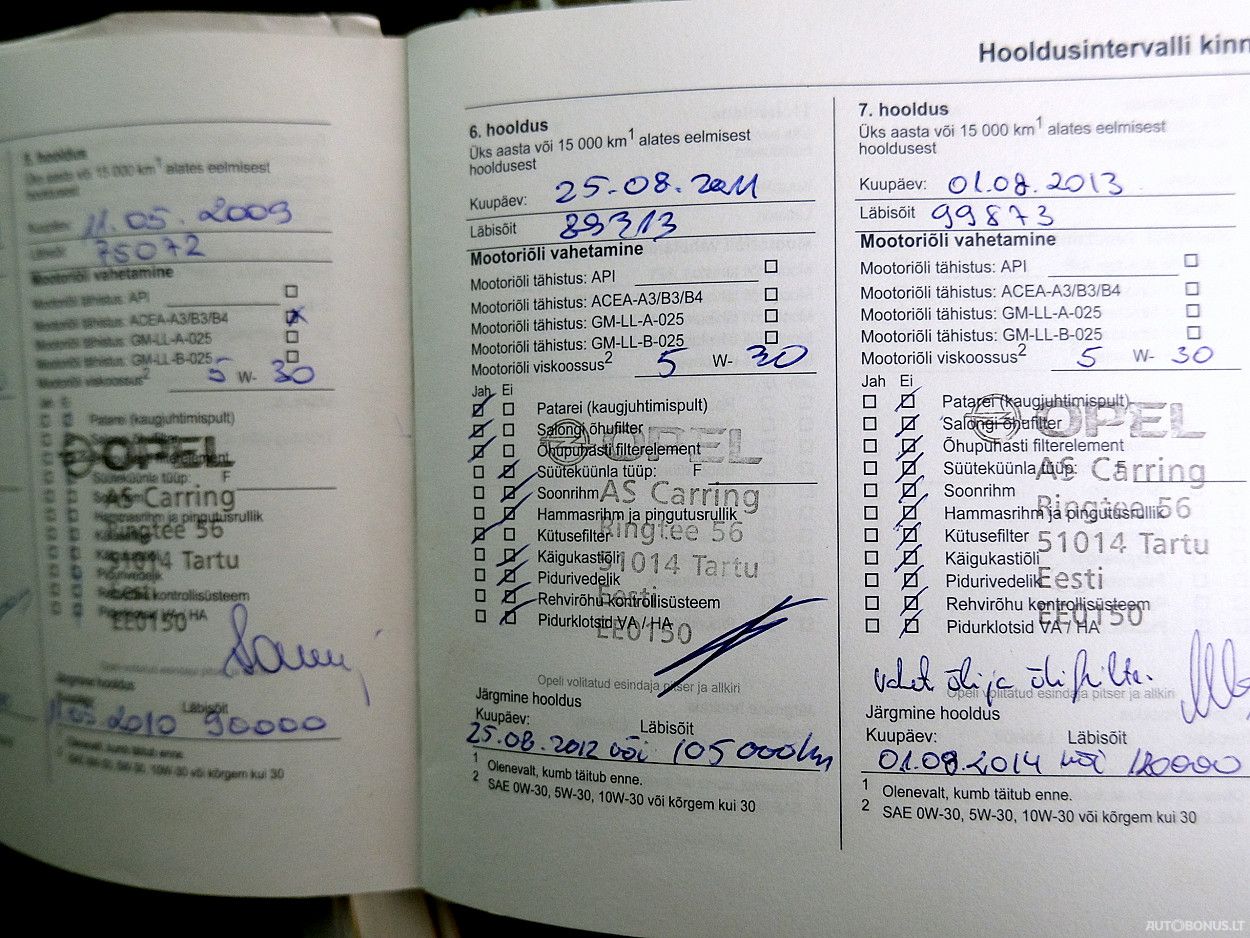 5. hooldus
Üks aasta või 15 000 km1 alates eelmisest
hooldusest
Kuupäev: 11.05.2009
Läbisõit 75072
Mootoriõli vahetamine
Mootoriõli tähistus: API
Mootoriõli tähistus: ACEA-A3/B3/B4
Mootoriõli tähistus: GM-LL-A-025
Mootoriõli tähistus: GM-LL-B-025
Mootoriõli viskoossus2 5 W- 30
Patarei (kaugjuhtimispult)
OPEL
Süüteküünla tüüp: F
AS Carring
Hammasrihm ja pingutusrullik
Ringtee 56
51014 Tartu
Käigukastiõli
Pidurivedelik
Rehvirõhu kontrollisüsteem
Pidurklotsid VA / HA
EE0150
Opeli volitatud esindaja
Järgmine hooldus
Läbisõit
11.05.2010 90000
1 Olenevalt, kumb täitub enne.
2 SAE 0W-30, 5W-30, 10W-30 või kõrgem kui 30
Hooldusintervalli kinn
6. hooldus
Üks aasta või 15 000 km1 alates eelmisest
hooldusest
Kuupäev: 25.08.2011
Läbisõit 89313
Mootoriõli vahetamine
Mootoriõli tähistus: API
Mootoriõli tähistus: ACEA-A3/B3/B4
Mootoriõli tähistus: GM-LL-A-025
Mootoriõli tähistus: GM-LL-B-025
Mootoriõli viskoossus2 5 W- 30
Jah Ei
Patarei (kaugjuhtimispult)
Salongi õhufilter
OPEL
Õhupuhasti filterelement
Süüteküünla tüüp: F
Soonrihm
AS Carring
Hammasrihm ja pingutusrullik
Ringtee 56
Kütusefilter
Käigukastiõli
51014 Tartu
Pidurivedelik
Eesti
Rehvirõhu kontrollisüsteem
Pidurklotsid VA / HA
EE0150
Opeli volitatud esindaja pitser ja allkiri
Järgmine hooldus
Kuupäev: Läbisõit
25.08.2012 või 105 000km
1 Olenevalt, kumb täitub enne.
2 SAE 0W-30, 5W-30, 10W-30 või kõrgem kui 30
7. hooldus
Üks aasta või 15 000 km1 alates eelmisest
hooldusest
Kuupäev: 01.08.2013
Läbisõit 99873
Mootoriõli vahetamine
Mootoriõli tähistus: API
Mootoriõli tähistus: ACEA-A3/B3/B4
Mootoriõli tähistus: GM-LL-A-025
Mootoriõli tähistus: GM-LL-B-025
Mootoriõli viskoossus2 5 W- 30
Jah Ei
Patarei (kaugjuhtimispult)
OPEL
Salongi õhufilter
Õhupuhasti filterelement
Süüteküünla tüüp: F
AS Carring
Soonrihm
Hammasrihm ja pingutusrullik
Ringtee 56
Kütusefilter
51014 Tartu
Käigukastiõli
Pidurivedelik
Eesti
Rehvirõhu kontrollisüsteem
EE0150
Pidurklotsid VA / HA
vahet. õli ja õlifilter.
Opeli volitatud esindaja pitser ja allkiri
Järgmine hooldus
Kuupäev: Läbisõit
01.08.2014 või 120000
1 Olenevalt, kumb täitub enne.
2 SAE 0W-30, 5W-30, 10W-30 või kõrgem kui 30
AUTOBONUS.LT